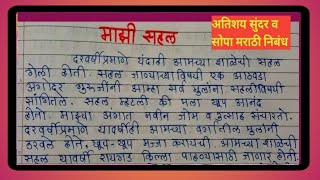 माझी सहल
अतिशय सुंदर व
सोपा मराठी निबंध
दरवर्षीप्रमाणे यंदाही आमच्या शाळेची सहल
गेली होती. सहल जाण्याच्याविषयी एक आठवडा
अगोदर गुरुजींनी आम्हा सर्व मुलांना सहलीविषयी
सांगितले. सहल म्हटली की मला खूप आनंद
होतो. माझ्या अंगात नवीन जोम व उत्साह संचारतो.
दरवर्षीप्रमाणे यावर्षीही आमच्या वर्गातील मुलांनी
ठरवले होते, खूप-खूप मज्जा करायची. आमच्या शाळेची
सहल यावर्षी रायगड किल्ला पाहण्यासाठी जाणार होती.